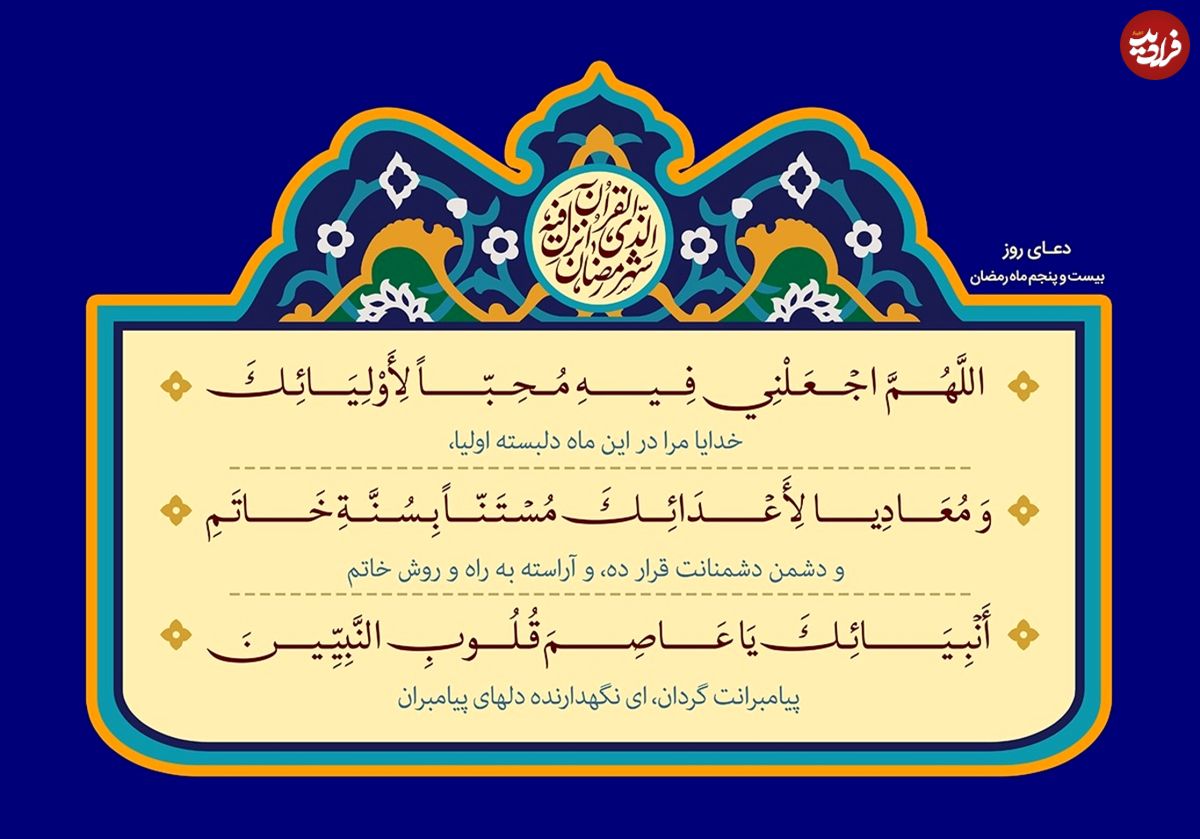 فرادید
اخبار
شَهرُ رَمَضان
الَّذی اُنزِلَ فیهِ
القُرآن
دعـای روز
بیست و پنجم ماه رمضان
اللَّهُمَّ اجْعَلْنِي فِيهِ مُحِبّاً لِأَوْلِيَائِكَ
خدایا مرا در این ماه دلبسته اولیا،
وَ مُعَادِيا لِأَعْدَائِكَ مُسْتَنّاً بِسُنَّةِ خَاتَمِ
و دشمن دشمنانت قرار ده، و آراسته به راه و روش خاتم
أَنْبِيَائِكَ يَا عَاصِمَ قُلُوبِ النَّبِيِّينَ
پیامبرانت گردان، ای نگهدارنده دلهای پیامبران